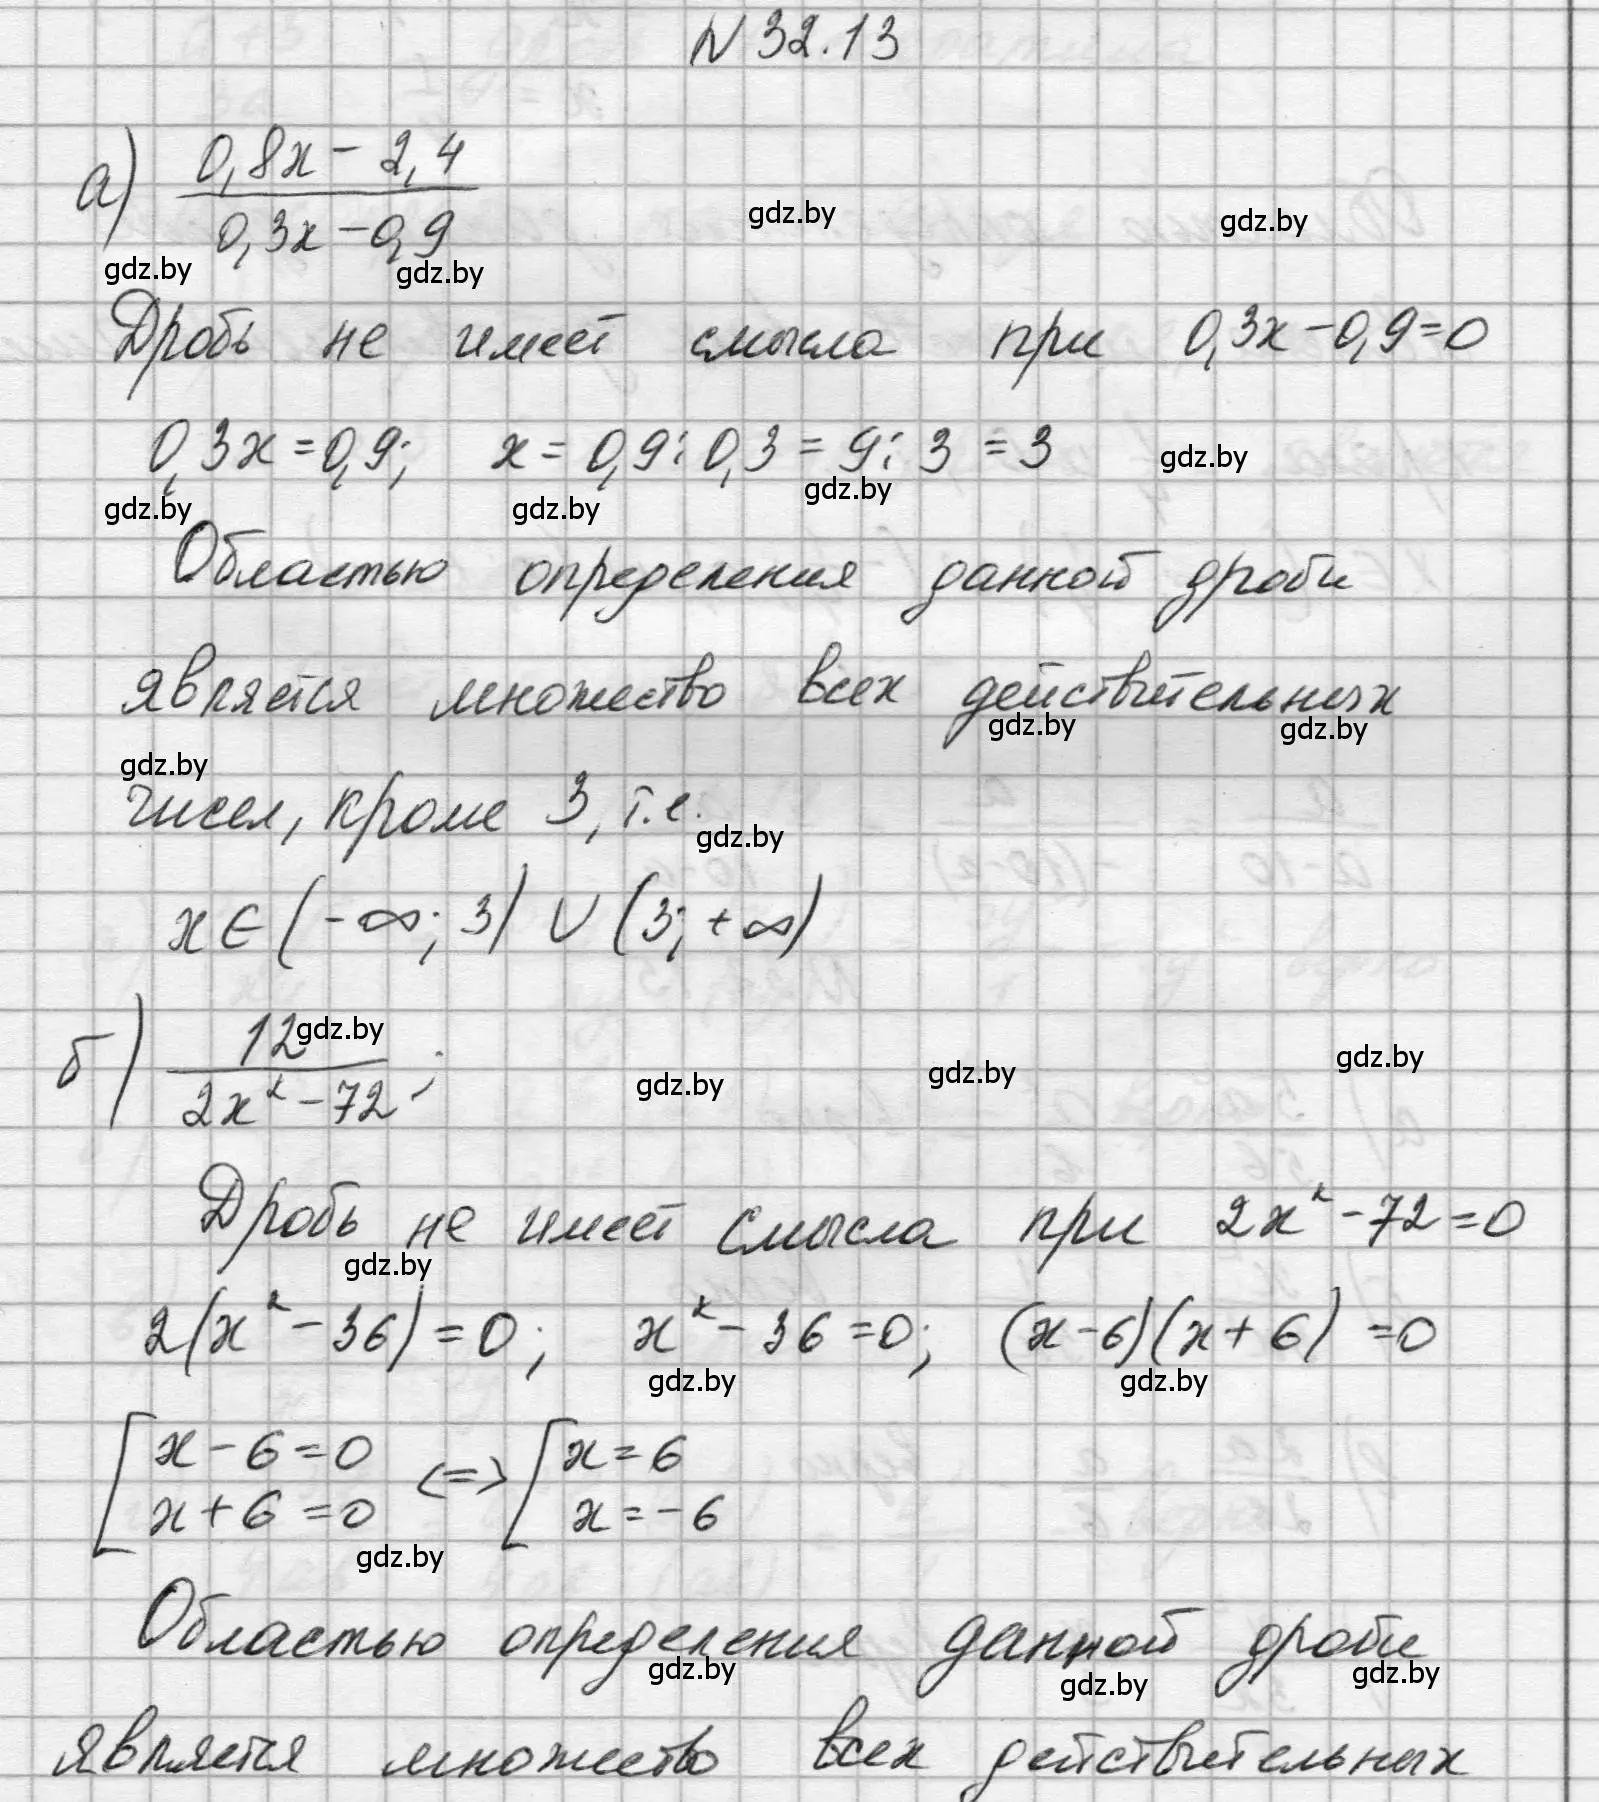 N 32.13
а) (0,8x - 2,4)/(0,3x - 0,9)
gdz.by gdz.by
gdz.by gdz.by
Дробь не имеет смысла при 0,3x - 0,9 = 0
0,3x = 0,9; x = 0,9 : 0,3 = 9 : 3 = 3 gdz.by
gdz.by gdz.by gdz.by
Областью определения данной дроби
является множество всех действительных
gdz.by gdz.by
gdz.by
чисел, кроме 3, т.е.
gdz.by
x ∈ (-∞; 3) ∪ (3; +∞)
б) 12/(2x² - 72);
gdz.by gdz.by gdz.by gdz.by
Дробь не имеет смысла при 2x² - 72 = 0
gdz.by
2(x² - 36) = 0; x² - 36 = 0; (x - 6)(x + 6) = 0
gdz.by gdz.by
[ x - 6 = 0 <=> [ x = 6
x + 6 = 0 x = -6
gdz.by
Областью определения данной дроби
gdz.by gdz.by gdz.by
является множество всех действительных